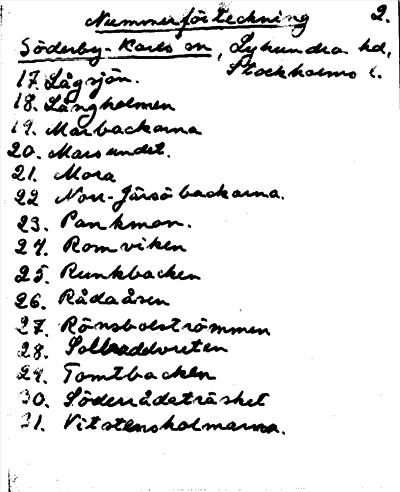 Nummerförteckning 2.
Söderby-Karls sn, Lyhundra hd,
Stockholms l.
17. Lågsjön.
18. Långholmen
19. Marbackarna
20. Marsundet.
21. Mora
22 Norr-Järsöbackarna.
23. Pankman.
24. Romviken
25. Runkbacken
26. Rådaåsen
27. Rönsbolströmmen
28.
29. Tomtbacken
30. Söderrådaträsket
31. Vitstensholmarna.